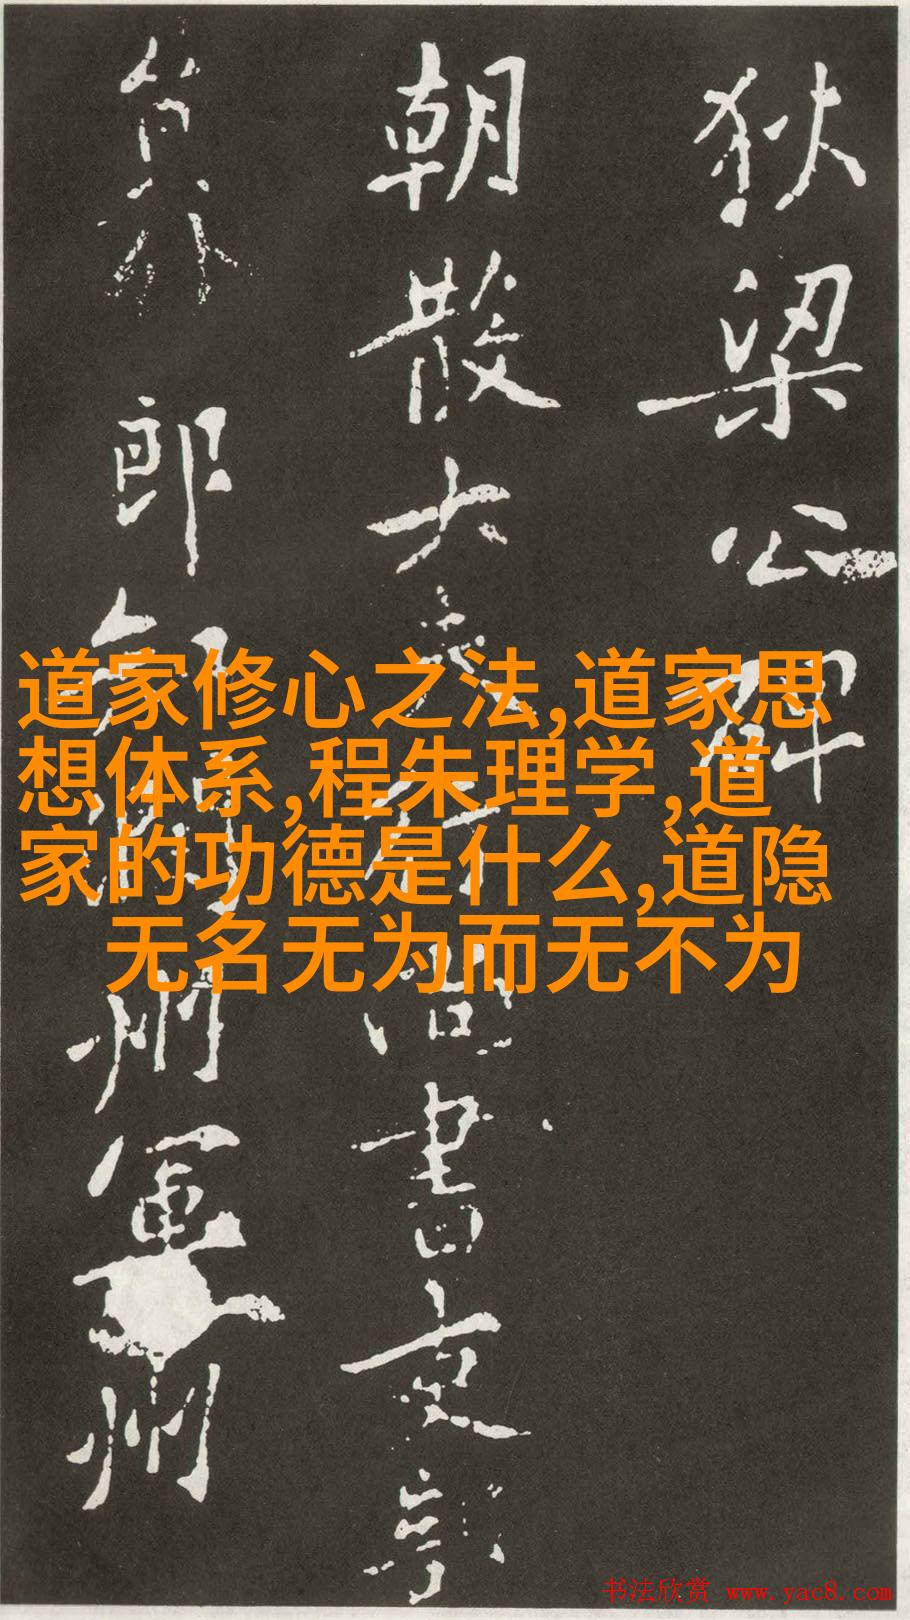 狄梁公碑
朝散大夫行尚書吏部
員外郎知潤州軍州
道家修心之法,道家思
想体系,程朱理学,道
家的功德是什么,道隐
无名无为而无不为
书法欣赏 www.yac8.com